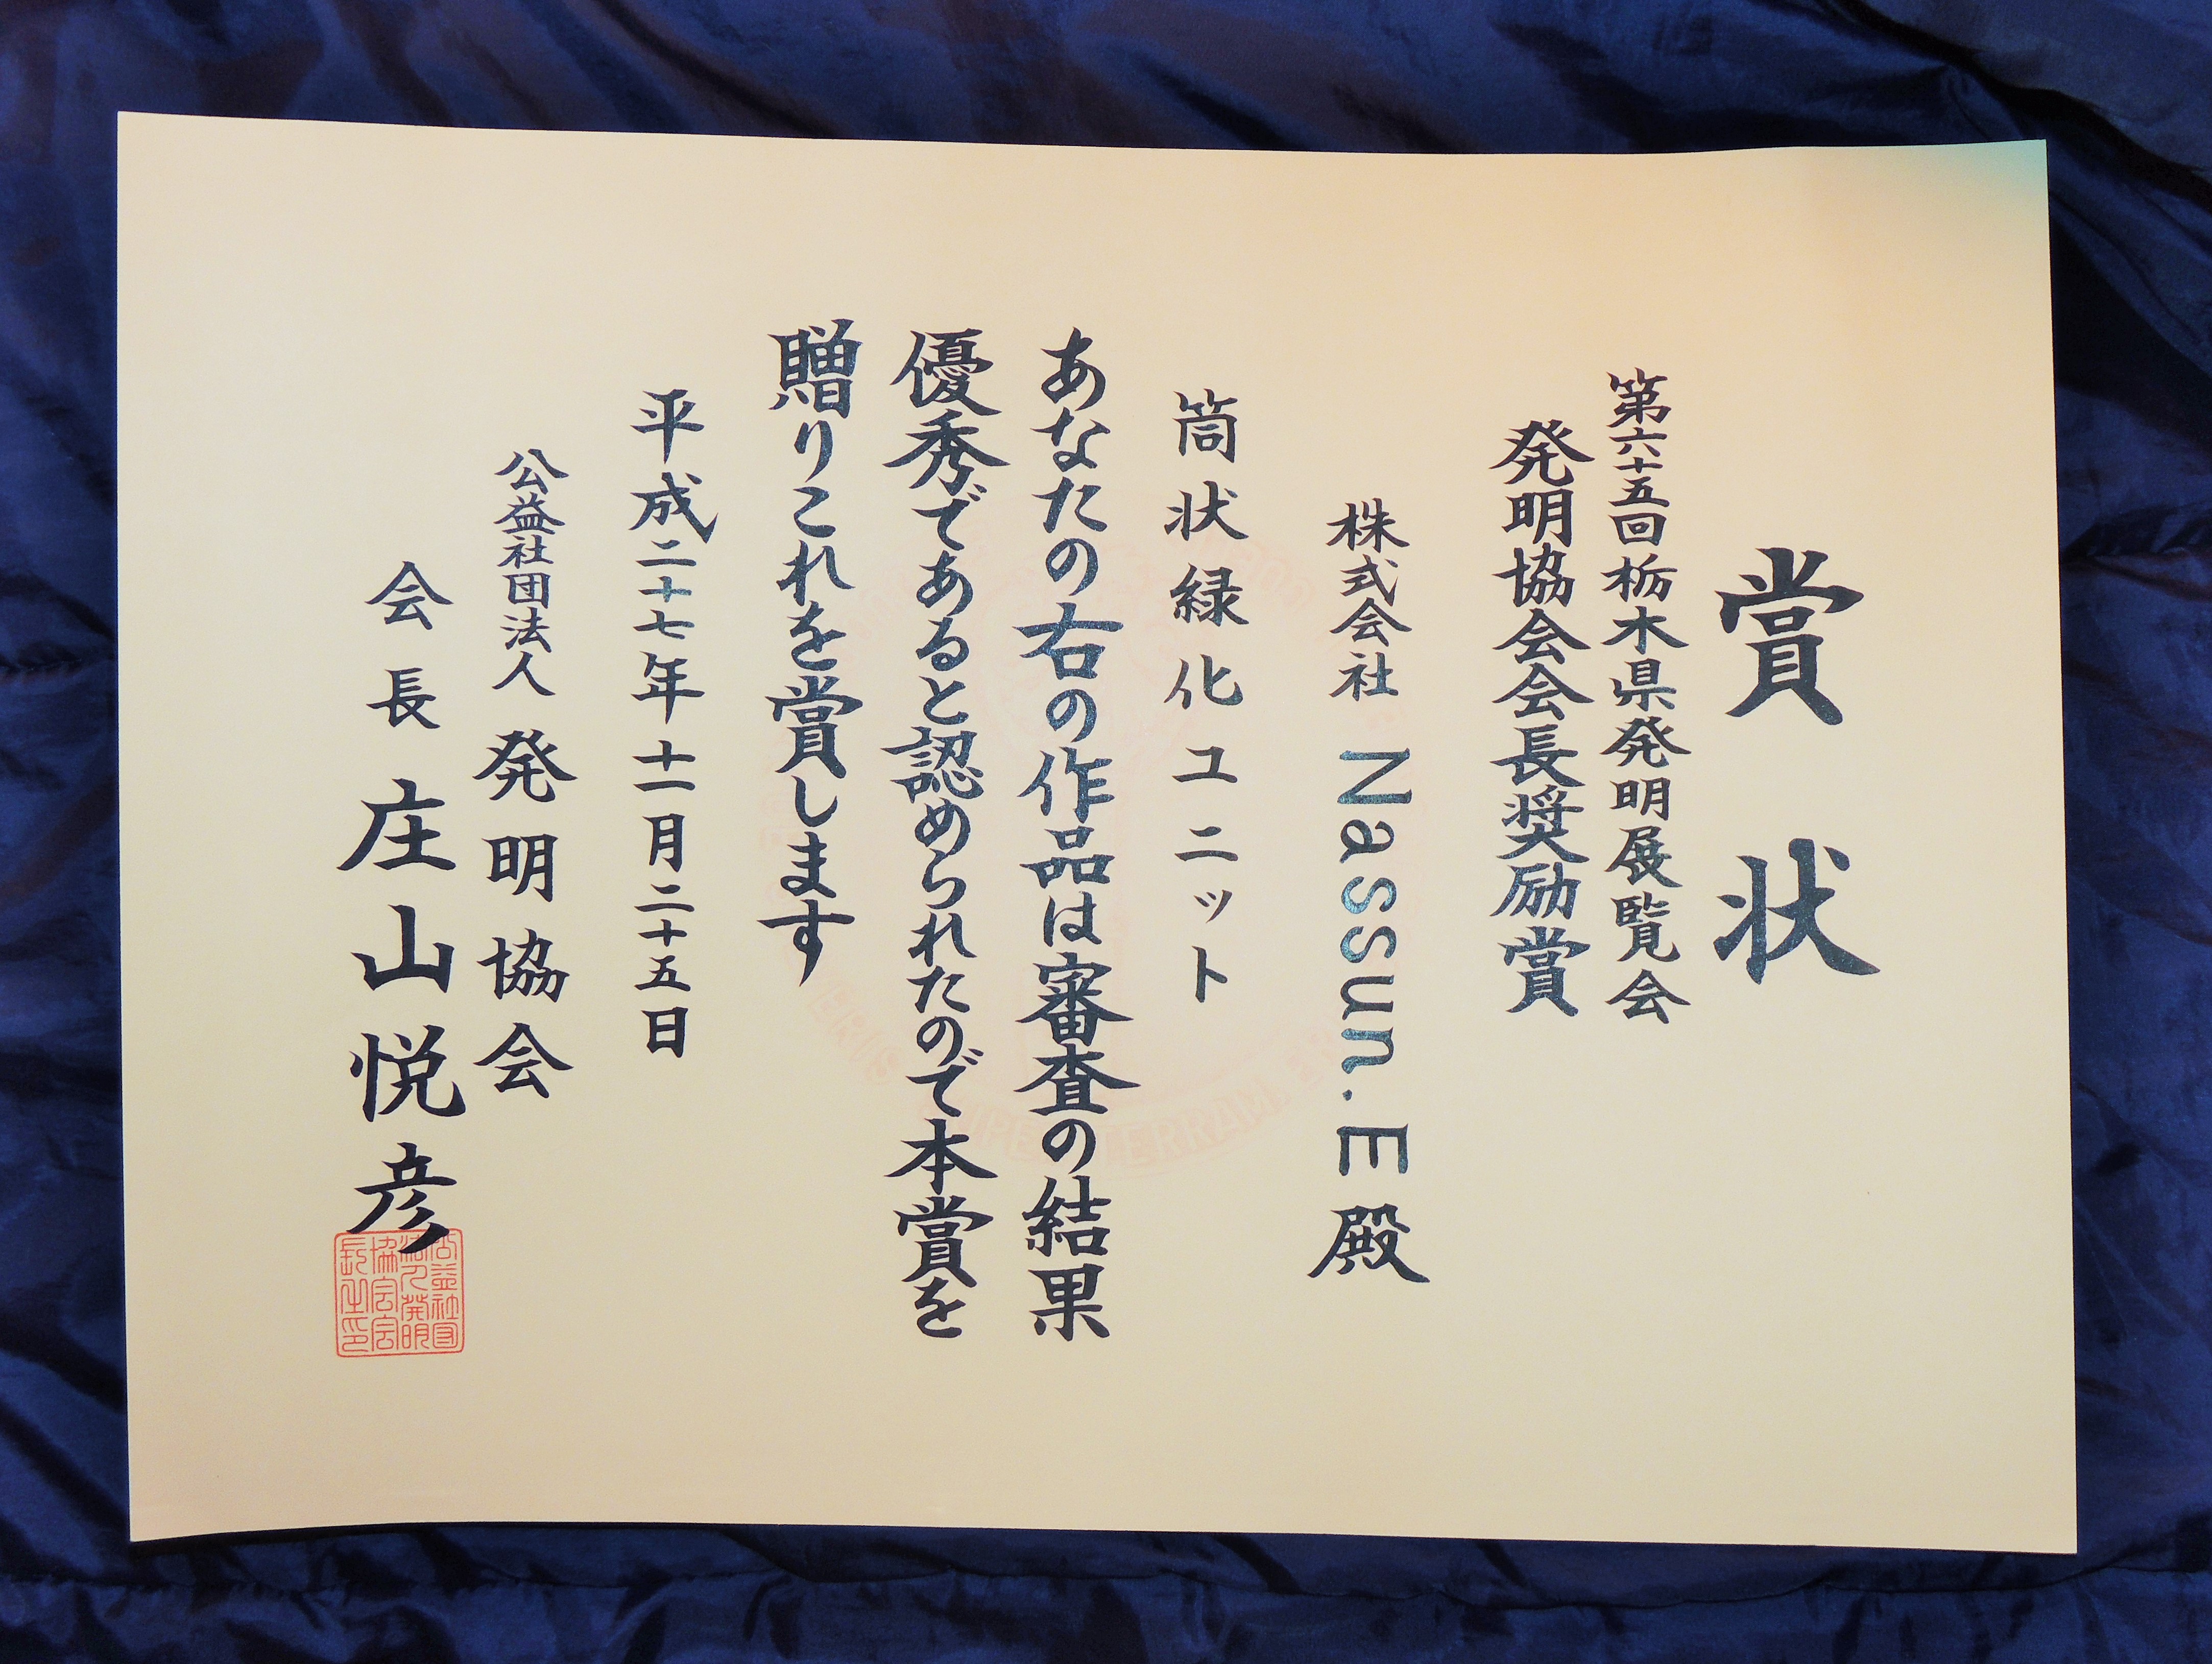 賞状
第六十五回栃木県発明展覧会
発明協会会長奨励賞
株式会社 Nassun.E 殿
筒状緑化ユニット
あなたの右の作品は審査の結果
優秀であると認められたので本賞を
贈りこれを賞します
平成二十七年十一月二十五日
公益社団法人 発明協会
会長 庄山悦彦
公益社団
法人発明
協会会
長之印